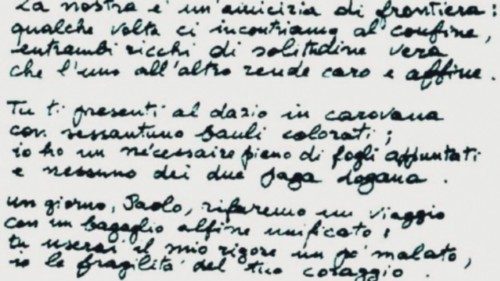 La nostra è un'amicizia di frontiera:
qualche volta ci incontriamo al confine,
entrambi ricchi di solitudine vera
che l'uno all'altro rende caro e affine.
Tu ti presenti al dazio in carovana
con sessantuno bauli colorati;
io ho un nécessaire pieno di fogli appuntati
e nessuno dei due paga dogana.
Un giorno, Paolo, rifaremo un viaggio
con un bagaglio alfine unificato:
tu userai il mio rigore un po' malato,
io la fragilità del tuo coraggio.